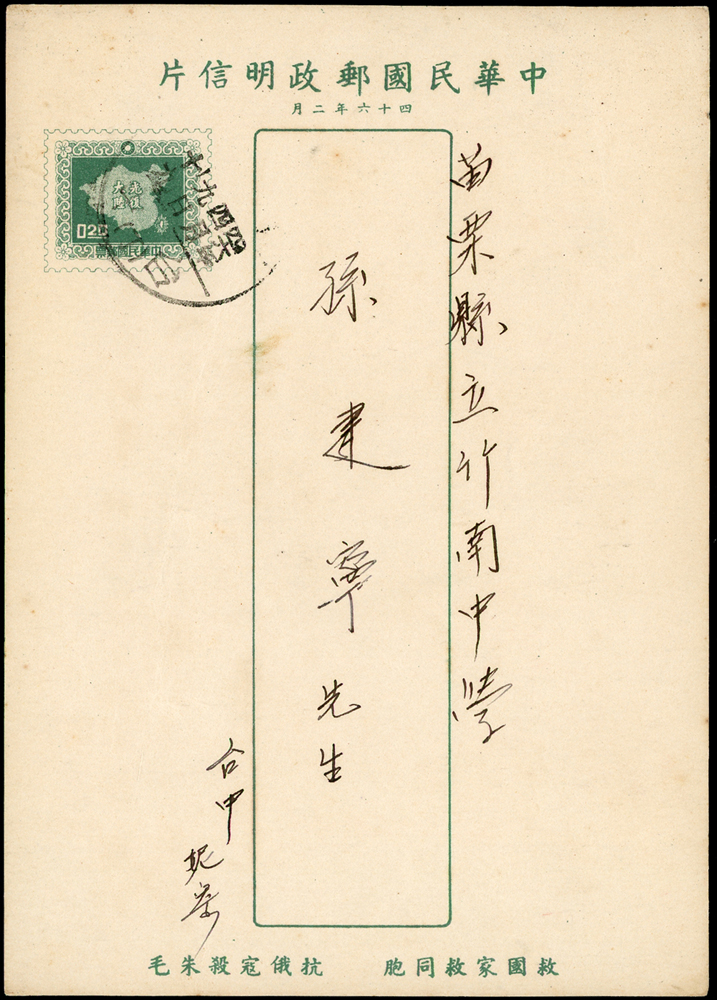 中華民國郵政明信片
四十六年二月
光復
大陸
0.20
中華民國郵票
苗栗縣立竹南中學
孫建寧先生
台中
救國家救同胞 抗俄寇殺朱毛